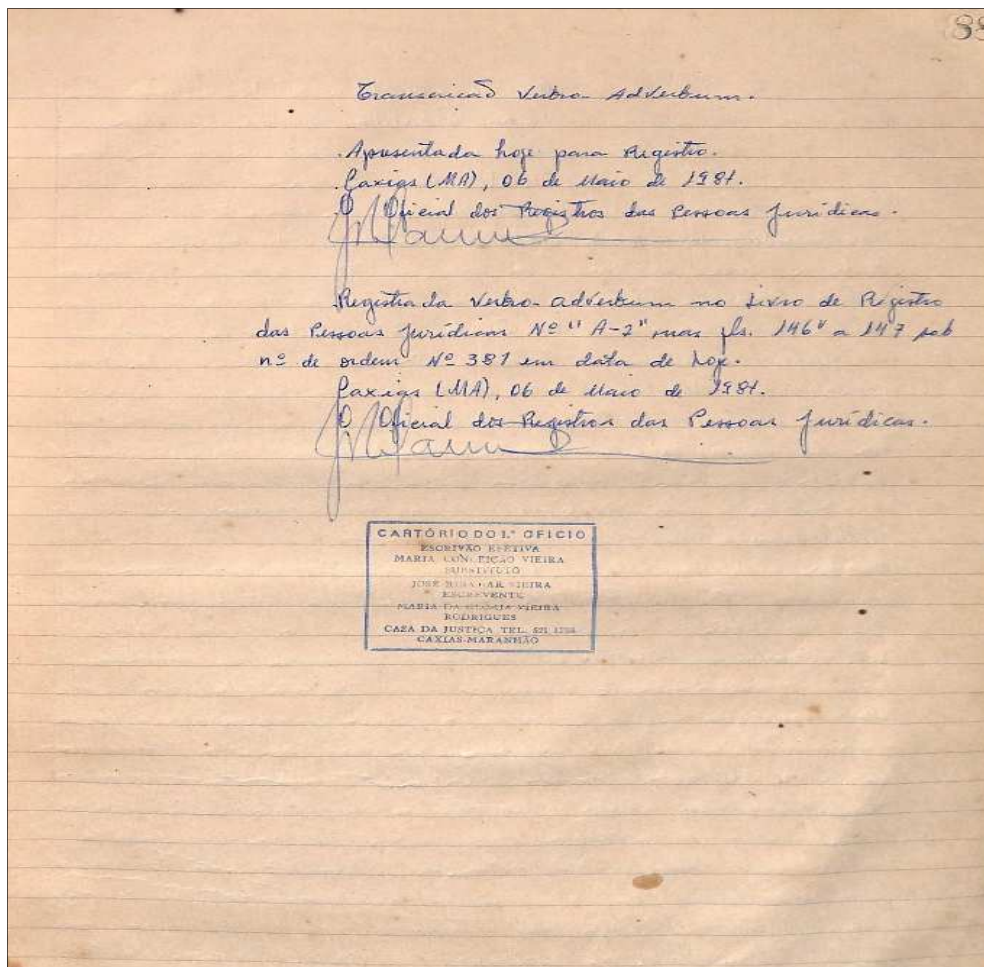 88
Transcricão Verbo-Adverbum.
Apresentada hoje para Registro.
Caxias (MA), 06 de Maio de 1981.
O Oficial dos Registros das Pessoas Jurídicas.
Registrada Verbo-adverbum no Livro de Registro
das Pessoas Jurídicas Nº "A-2" nas fls. 146v a 147 sob
nº de ordem Nº 381 em data de hoje.
Caxias (MA), 06 de Maio de 1981.
O Oficial dos Registros das Pessoas Jurídicas.
CARTÓRIO DO 1.º OFICIO
ESCRIVÃO EFETIVA
MARIA CONCEIÇÃO VIEIRA
SUBSTITUTO
JOSÉ RIBAMAR VIEIRA
ESCREVENTE
MARIA DA GLORIA VIEIRA
RODRIGUES
CASA DA JUSTIÇA TEL. 521
CAXIAS-MARANHÃO